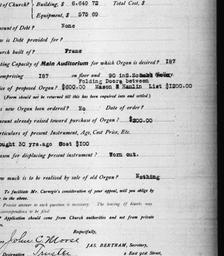 of Church? $ 6.640 72 Total Cost, $
Equipment, $ 578 69
mount of Debt? None
w is Debt provided for?
urch built of? Frame
ting Capacity of Main Auditorium for which Organ is desired? 187
omprising 187 on floor and 90 in
Folding Doors between
ice of proposed Organ? $600.00 Mason & Hamlin List $1200.00
(Form should not be returned till this has been organized into and settled.)
s new Organ been ordered? No Date of order?
ount already raised toward purchase of Organ? $200.00
rticulars of present Instrument, Age, Cost Price, Etc.
ought 30 yrs.ago Cost $100
eason for displacing present instrument? Worn out.
ow much is to be realised by sale of old Organ? Nothing
To facilitate Mr. Carnegie's consideration of your appeal, will you oblige by
in the above.
Precise answer to each question is necessary. The leaving of blanks may
correspondence to be filed.
Application should come from Church authorities and not from private
Respectfully,
John C. Morse
JAS. BERTRAM, Secretary,
Designation Trustee 2 East 91st Street,